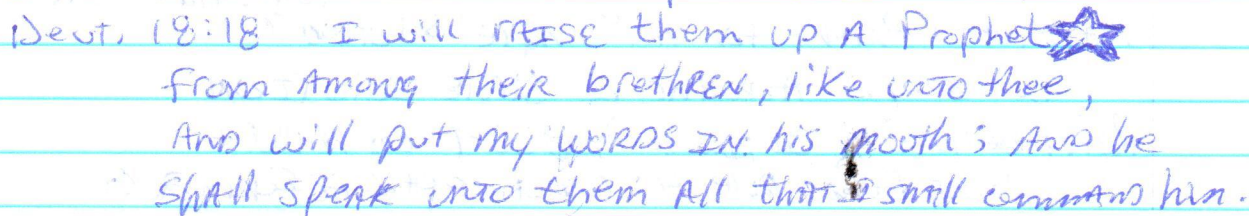 Deut. 18:18 I will RAISE them up A Prophet
from Among their brethREN, like unto thee,
AND will put my WORDS IN his mouth; AND he
ShAll SpeAK unto them All thAT I shAll commAND him.